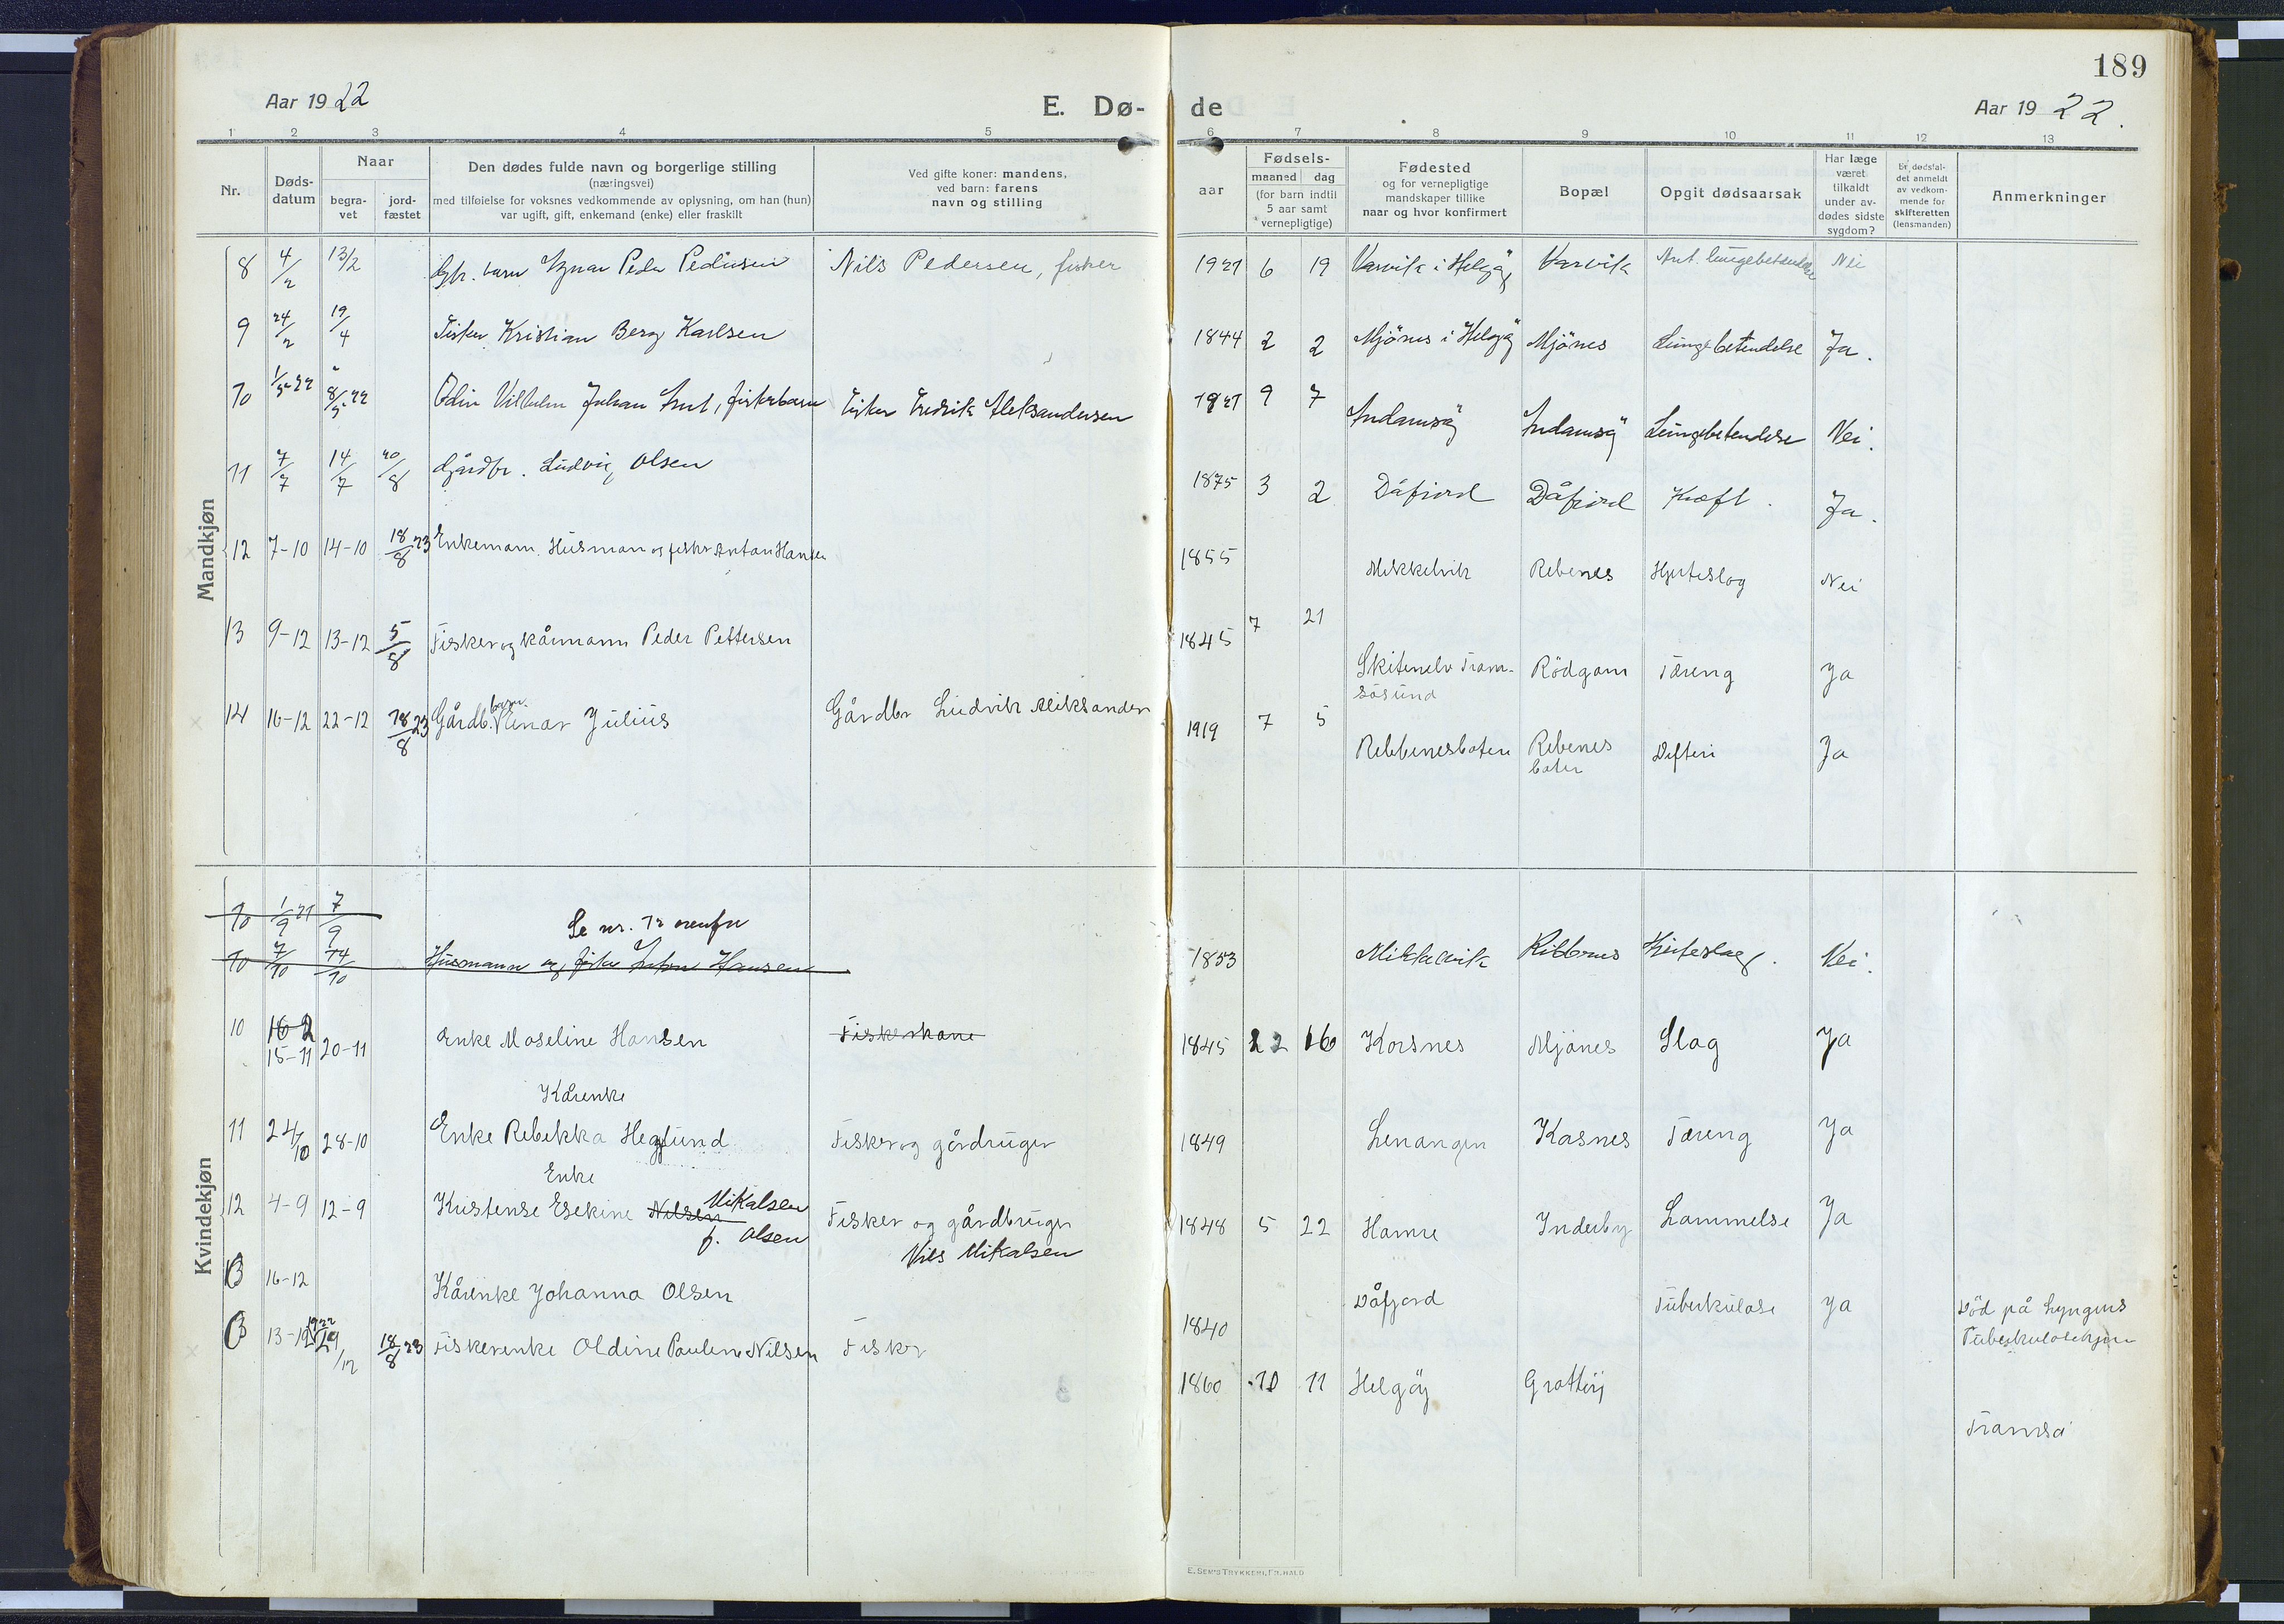 189
Aar 1922
E. Dø-
de
Aar 1922.
1 2 3 4 5 6 7 8 9 10 11 12 13
Nr.
Døds-
datum
Naar
begra-
vet
jord-
fæstet
Den dødes fulde navn og borgerlige stilling
(næringsvei)
med tilføielse for voksnes vedkommende av oplysning, om han (hun)
var ugift, gift, enkemand (enke) eller fraskilt
Ved gifte koner: mandens,
ved barn: farens
navn og stilling
aar
Fødsels-
maaned dag
(for barn indtil
5 aar samt
vernepligtige)
Fødested
og for vernepligtige
mandskaper tillike
naar og hvor konfirmert
Bopæl
Opgit dødsaarsak
Har læge
været
tilkaldt
under av-
dødes sidste
sygdom?
Er dødsfal-
det anmeldt
av vedkom-
mende for
skifteretten
(lensmanden)
Anmerkninger
Mandkjøn
8 4/2 13/2 barn Peder Pedersen Nils Pedersen, fisker 1921 6 19 Varvik i Helgöy Varvik Lungebetendelse Nei
9 24/2 19/4 Fisker Kristian Berg Karlsen 1844 2 2 Mjönes i Helgöy Mjönes Lungebetendelse Ja.
10 1/5-22 8/5-22 Odin Vilhelm Johan fiskerbarn Fisker Fredrik Aleksandersen 1921 9 7 Lungebetendelse Nei.
11 7/7 14/7 20/8 Gårdbr. Ludvig Olsen 1875 3 2 Dåfjord Dåfjord Kræft. Ja.
12 7-10 14-10 18/8 23 Enkemann. Husman og fisker Anton Hansen 1855 Mikkelvik Rebenes Hjerteslag Nei
13 9-12 13-12 5/8 Fisker og kårmann Peder Pettersen 1845 7 21 Skitenelv Trom-
sösund Rödgam Tæring Ja
14 16-12 22-12 18/8 23 Gårdb. barn Einar Julius Gårdbr Ludvik Aleksander 1919 7 5 Rebbenesboten Rebenes
boten Difteri Ja
Kvindekjøn
10 1/9 21 7/9
Se nr. 12 ovenfor
10 7/10 14/10 Husmann og fisker Anton Hansen 1853 Mikkelvik Ribbenes Hjerteslag. Nei.
10 16-2
15-11 20-11 Enke Moseline Hansen Fiskerkone 1845 22 16 Korsnes Mjönes Slag Ja
Kårenke
11 24/10 28-10 Enke Rebekka Heglund Fisker og gårdruger 1849 Lenangen Kasnes Tæring Ja
Enke
12 4-9 12-9 Kristense Esekine Nilsen Mikalsen
f. Olsen Fisker og gårdbruger
Nils Mikalsen 1848 5 22 Hamre Inderby Lammelse Ja
13 16-12 Kårenke Johanna Olsen 1840 Dåfjord Tuberkulose Ja Död på Lyngens
Tuberkulosehjem
13-12 1922 29/12 18/8 23 Fiskerenke Oldine Pauline Nilsen Fisker 1860 10 11 Helgöy Grottöy
Tromsö
E. SEM'S TRYKKERI, FR.HALD